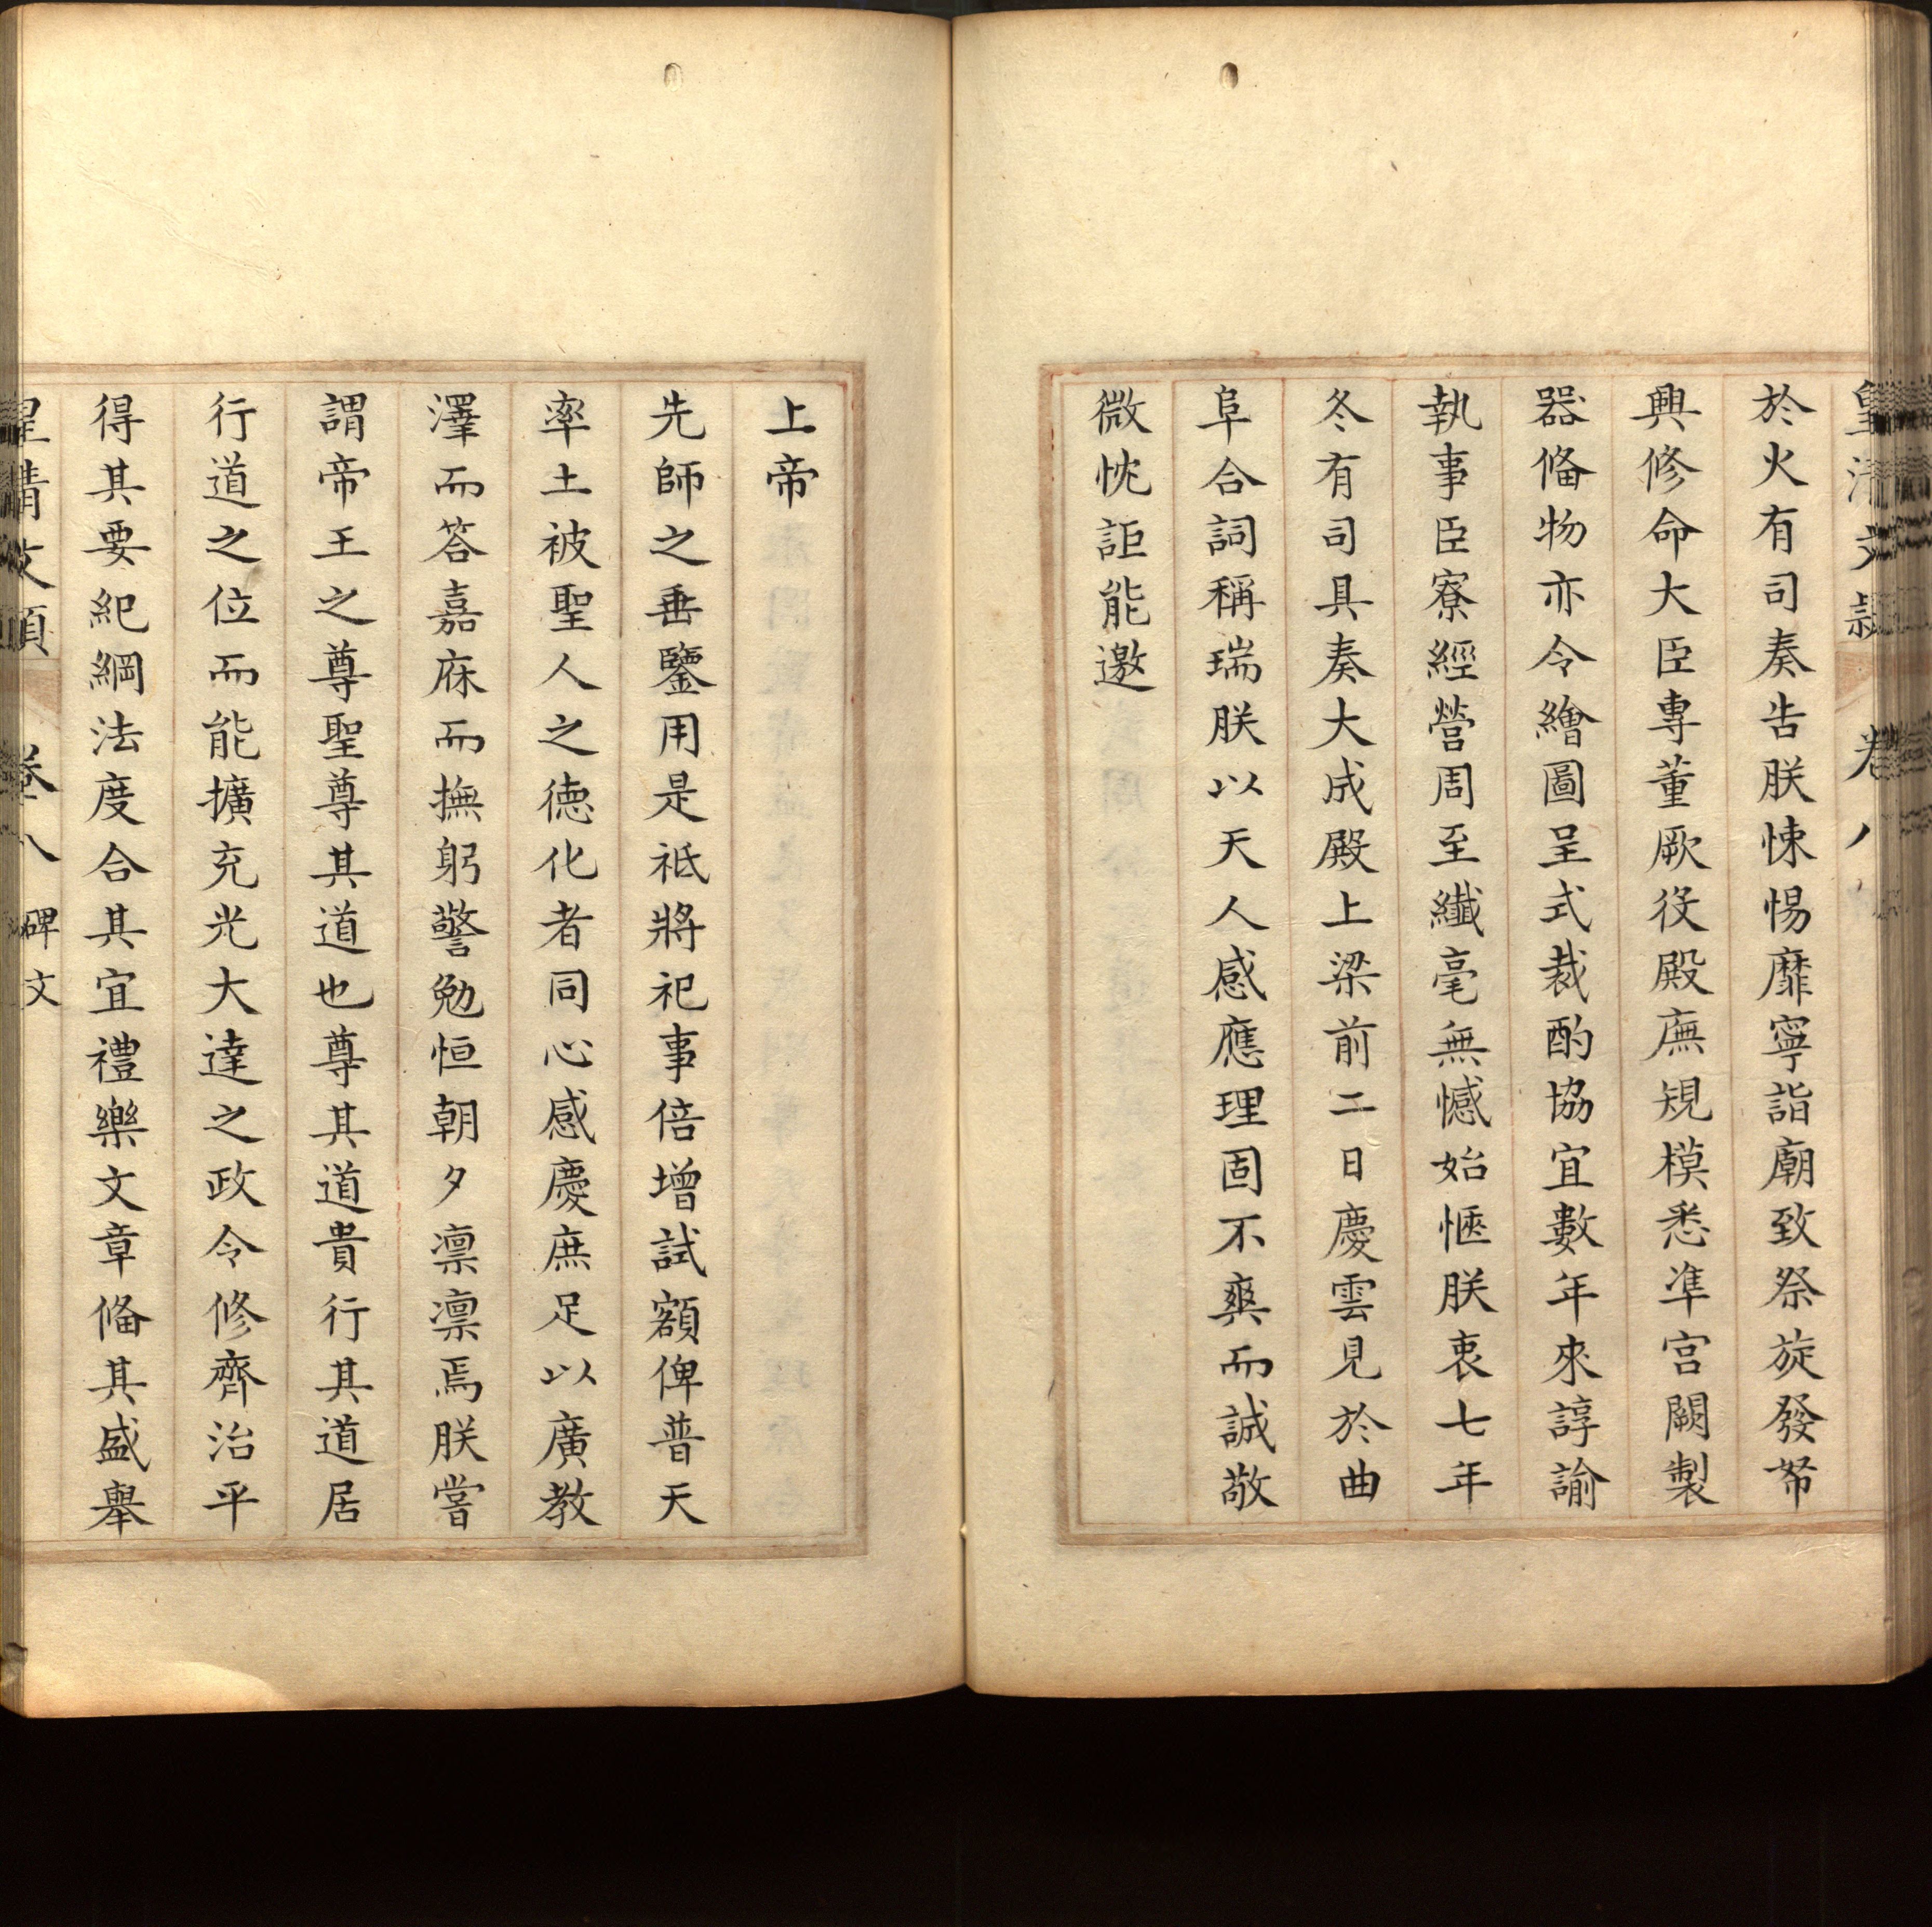 皇清文穎 卷八
於火有司奏告朕悚惕靡寧詣廟致祭旋發帑
興修命大臣專董厥役殿廡規模悉準宫闕製
器俻物亦令繪圖呈式裁酌協宜數年來諄諭
執事臣寮經營周至纎毫無憾始愜朕衷七年
冬有司具奏大成殿上梁前二日慶雲見於曲
阜合詞稱瑞朕以天人感應理固不爽而誠敬
微忱詎能邀
上帝
先師之垂鑒用是祗將祀事倍增試額俾普天
率土被聖人之德化者同心感慶庶足以廣教
澤而答嘉庥而撫躬警勉恒朝夕凛凛焉朕嘗
謂帝王之尊聖尊其道也尊其道貴行其道居
行道之位而能擴充光大達之政令修齊治平
得其要紀綱法度合其宜禮樂文章俻其盛舉
皇清文穎 卷八 碑文